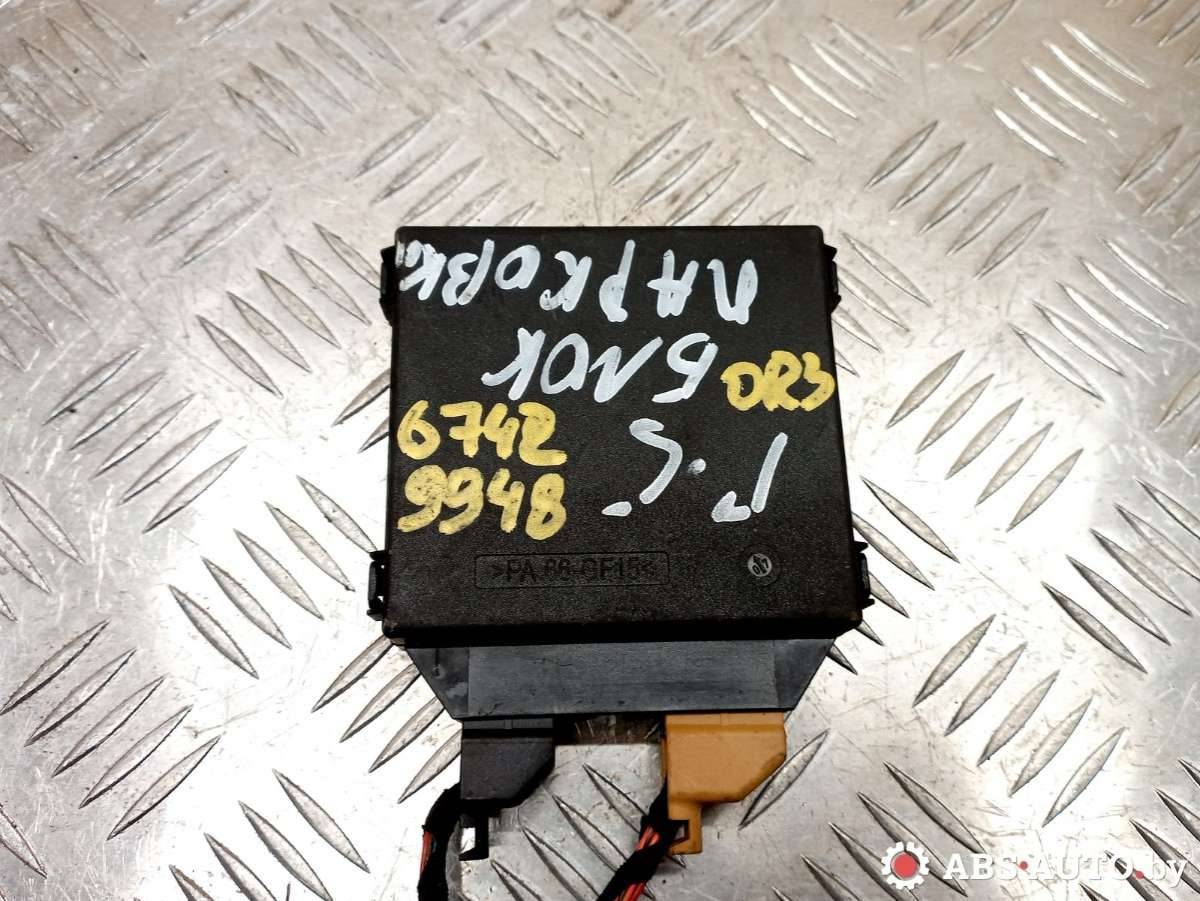 БЛОК
ПАРКОВКИ
DR3
6742
9948
>PA 66-GF15<
ABS-AUTO.by